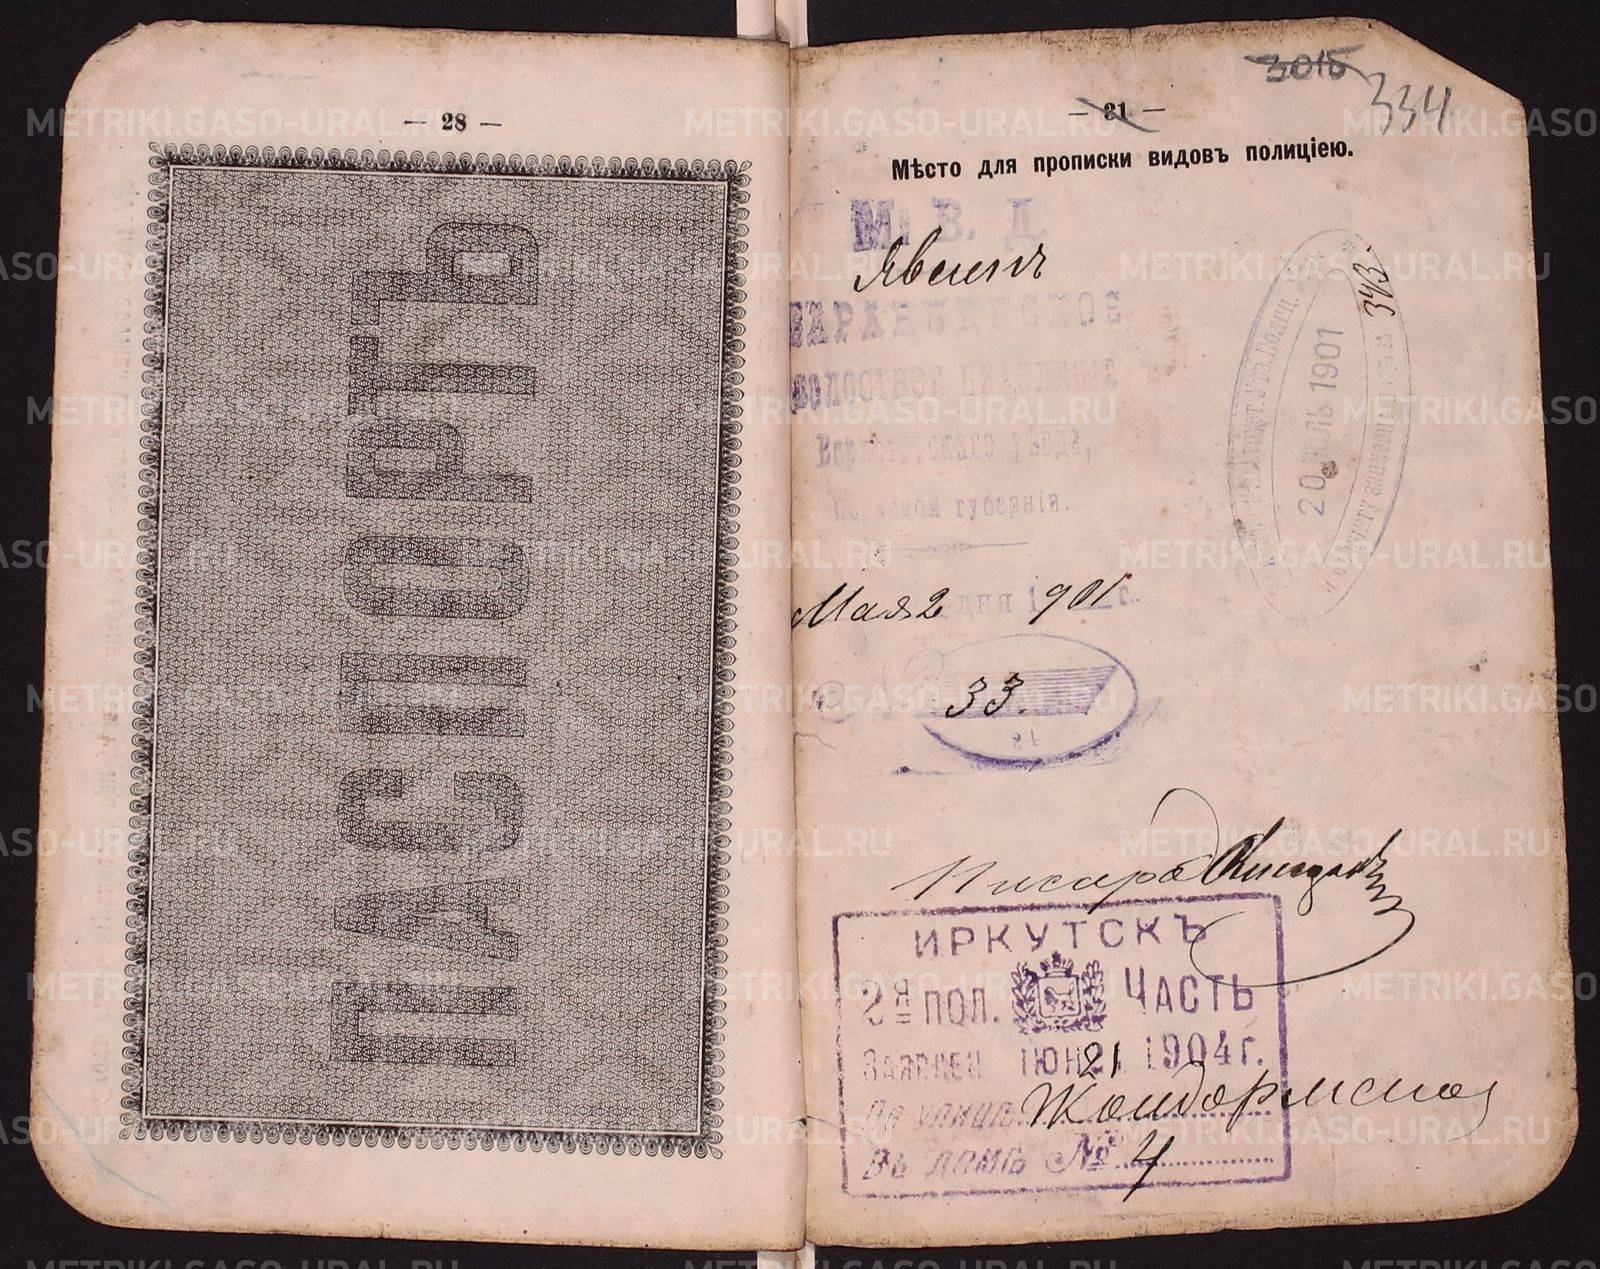 — 28 —
ПАСПОРТЪ
3015
334
— 31 —
Мѣсто для прописки видовъ полиціею.
М. В. Д.
Явленъ
ВОЛОСТНОЕ ПРАВЛЕНІЕ
уѣзда,
губерніи.
Мая 2 дня 1901 г.
33.
20 1901
343
Писарь
ИРКУТСКЪ
2я ПОЛ. ЧАСТЬ
Заявлен ІЮН 21 1904 г.
По улицѣ Жандармской
Въ домѣ № 4
METRIKI.GASO-URAL.RU